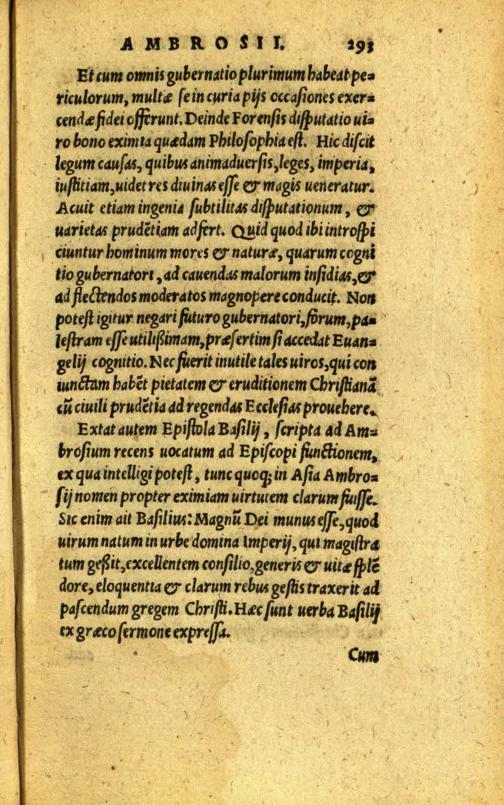 AMBROSII. 293
Et cum omnis gubernatio plurimum habeat pe=
riculorum, multæ se in curia pijs occasiones exer=
cendæ fidei offerunt. Deinde Forensis disputatio ui=
ro bono eximia quædam Philosophia est. Hic discit
legum causas, quibus animaduersis, leges, imperia,
iustitiam, uidet res diuinas esse & magis ueneratur.
Acuit etiam ingenia subtilitas disputationum, &
uarietas prudẽtiam adfert. Quid quod ibi introspi
ciuntur hominum mores & naturæ, quarum cogni
tio gubernatori, ad cauendas malorum insidias, &
ad flectendos moderatos magnopere conducit. Non
potest igitur negari futuro gubernatori, forum, pa=
lestram esse utilißimam, præsertim si accedat Euan=
gelij cognitio. Nec fuerit inutile tales uiros, qui con
iunctam habẽt pietatem & eruditionem Christianã
cũ ciuili prudẽtia ad regendas Ecclesias prouehere.
Extat autem Epistola Basilij, scripta ad Am=
brosium recens uocatum ad Episcopi functionem,
ex qua intelligi potest, tunc quoq; in Asia Ambro=
sij nomen propter eximiam uirtutem clarum fuisse.
Sic enim ait Basilius: Magnũ Dei munus esse, quod
uirum natum in urbe domina Imperij, qui magistra
tum geßit, excellentem consilio, generis & uitæ splẽ
dore, eloquentia & clarum rebus gestis traxerit ad
pascendum gregem Christi. Hæc sunt uerba Basilij
ex græco sermone expressa.
Cum